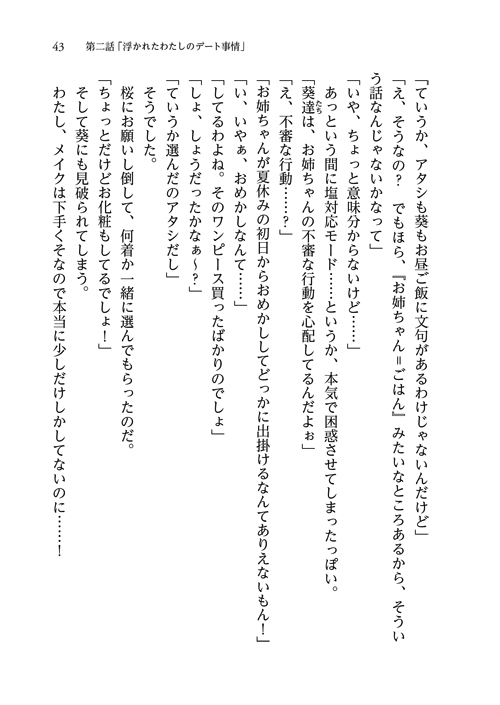 43　第二話「浮かれたわたしのデート事情」
「ていうか、アタシも葵もお昼ご飯に文句があるわけじゃないんだけど」
「え、そうなの？　でもほら、『お姉ちゃん＝ごはん』みたいなところあるから、そうい
う話なんじゃないかなって」
「いや、ちょっと意味分からないけど……」
　あっという間に塩対応モード……というか、本気で困惑させてしまったっぽい。
「葵達は、お姉ちゃんの不審な行動を心配してるんだよぉ」
たち
「え、不審な行動……？」
「お姉ちゃんが夏休みの初日からおめかししてどっかに出掛けるなんてありえないもん！」
「い、いやぁ、おめかしなんて……」
「してるわよね。そのワンピース買ったばかりのでしょ」
「しょ、しょうだったかなぁ～？」
「ていうか選んだのアタシだし」
　そうでした。
　桜にお願いし倒して、何着か一緒に選んでもらったのだ。
「ちょっとだけどお化粧もしてるでしょ！」
　そして葵にも見破られてしまう。
　わたし、メイクは下手くそなので本当に少しだけしかしてないのに……！